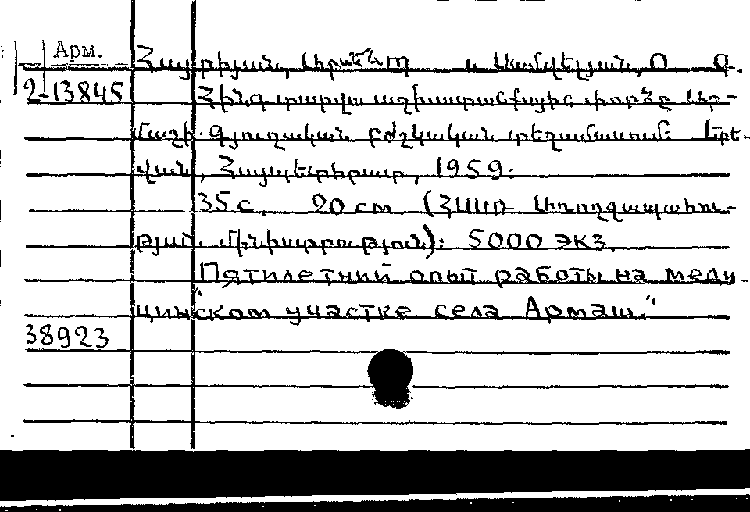 Арм.
2-13845
Հայրիյան, և Սամվելյան, Օ. Գ.
Հինգ տարվա աշխատանքային փորձը Ար-
մաշի գյուղական բժշկական տեղամասում: Երե-
վան, Հայպետհրատ, 1959:
35 с. 20 cm (ՀՍՍՌ Առողջապահու-
թյան մինիստրություն): 5000 экз.
"Пятилетний опыт работы на меди-
цинском участке села Армаш."
38923